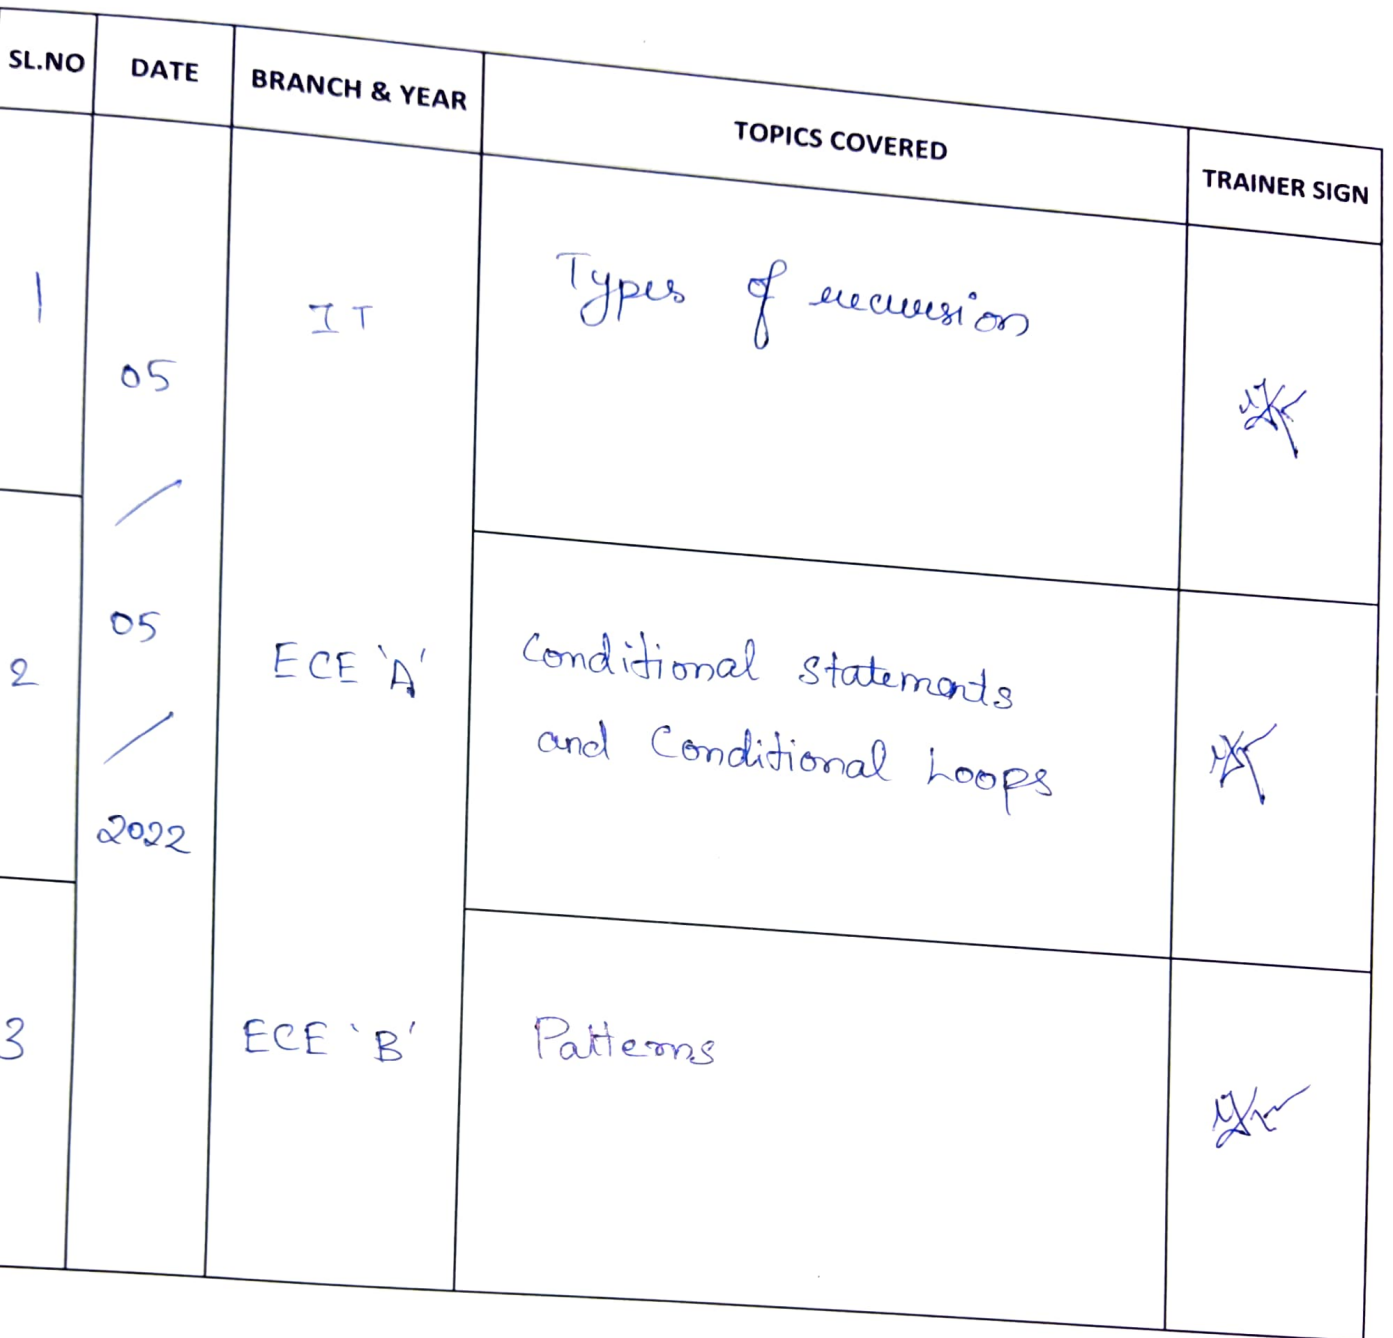 SL.NO DATE BRANCH & YEAR TOPICS COVERED TRAINER SIGN
1 IT Types of recursion
05
/
05
2 ECE 'A' Conditional Statements
and Conditional Loops
/
2022
3 ECE 'B' Patterns